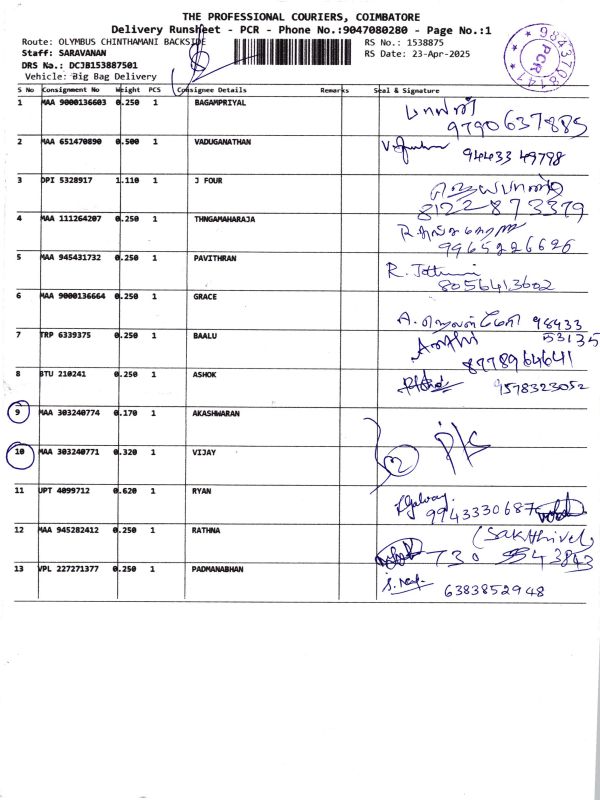 THE PROFESSIONAL COURIERS, COIMBATORE
Delivery Runsheet - PCR - Phone No.:9047080280 - Page No.:1
Route: OLYMBUS CHINTHAMANI BACKSIDE RS No.: 1538875
Staff: SARAVANAN RS Date: 23-Apr-2025
DRS No.: DCJB153887501
Vehicle: Big Bag Delivery
9843708141 PCR
S No Consignment No Weight PCS Consignee Details Remarks Seal & Signature
1 MAA 9000136603 0.250 1 BAGAMPRIYAL
9790637885
2 MAA 651470890 0.500 1 VADUGANATHAN 94433 49798
3 DPI 5328917 1.110 1 J FOUR
8122873379
4 MAA 111264207 0.250 1 THNGAMAHARAJA
9965226626
5 MAA 945431732 0.250 1 PAVITHRAN R.
8056413602
6 MAA 9000136664 0.250 1 GRACE
A. 98433
53135
7 TRP 6339375 0.250 1 BAALU
8778964641
8 BTU 210241 0.250 1 ASHOK 9578323052
9 MAA 303240774 0.170 1 AKASHWARAN
10 MAA 303240771 0.320 1 VIJAY
11 UPT 4099712 0.620 1 RYAN
9943330687
12 MAA 945282412 0.250 1 RATHNA (Sakthivel)
730 43843
13 VPL 227271377 0.250 1 PADMANABHAN
6383852948